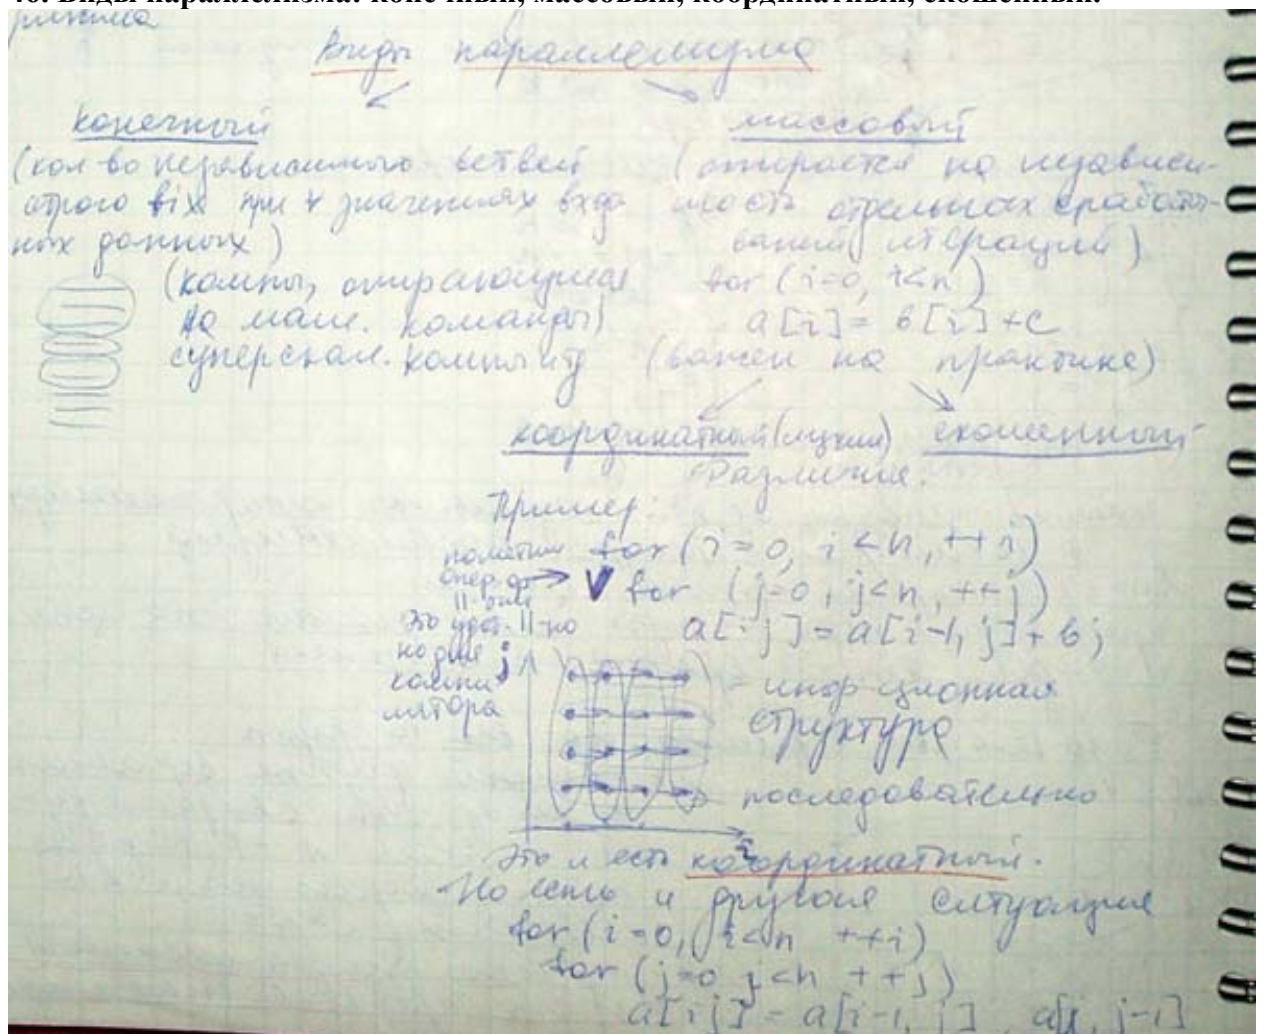 46. Виды параллелизма: конечный, массовый, координатный, скошенный.
Виды параллелизма
конечный
(кол-во независимого ветвей
строго при ∀ значениях вход
ных данных)
(компы, опирающиеся
на маш. команды)
суперскал. компы
массовый
(опирается на независи-
мость отдельных срабаты-
ваний итераций)
for (i=0, i<n)
a[i] = b[i]+c
(важен на практике)
координатный скошенный
Различия:
Пример:
for (i=0, i<n, ++i)
V for (j=0, j<n, ++j)
a[i j] = a[i-1, j] + b;
пометим
опер-р
||-
Это ||-но
но для
компи
лятора
j
инф-ционная
структура
последовательно
i
Это и есть координатный.
Но есть и другая ситуация
for (i=0, i<n ++i)
for (j=0 j<n ++j)
a[i j] = a[i-1, j], a[i, j-1]